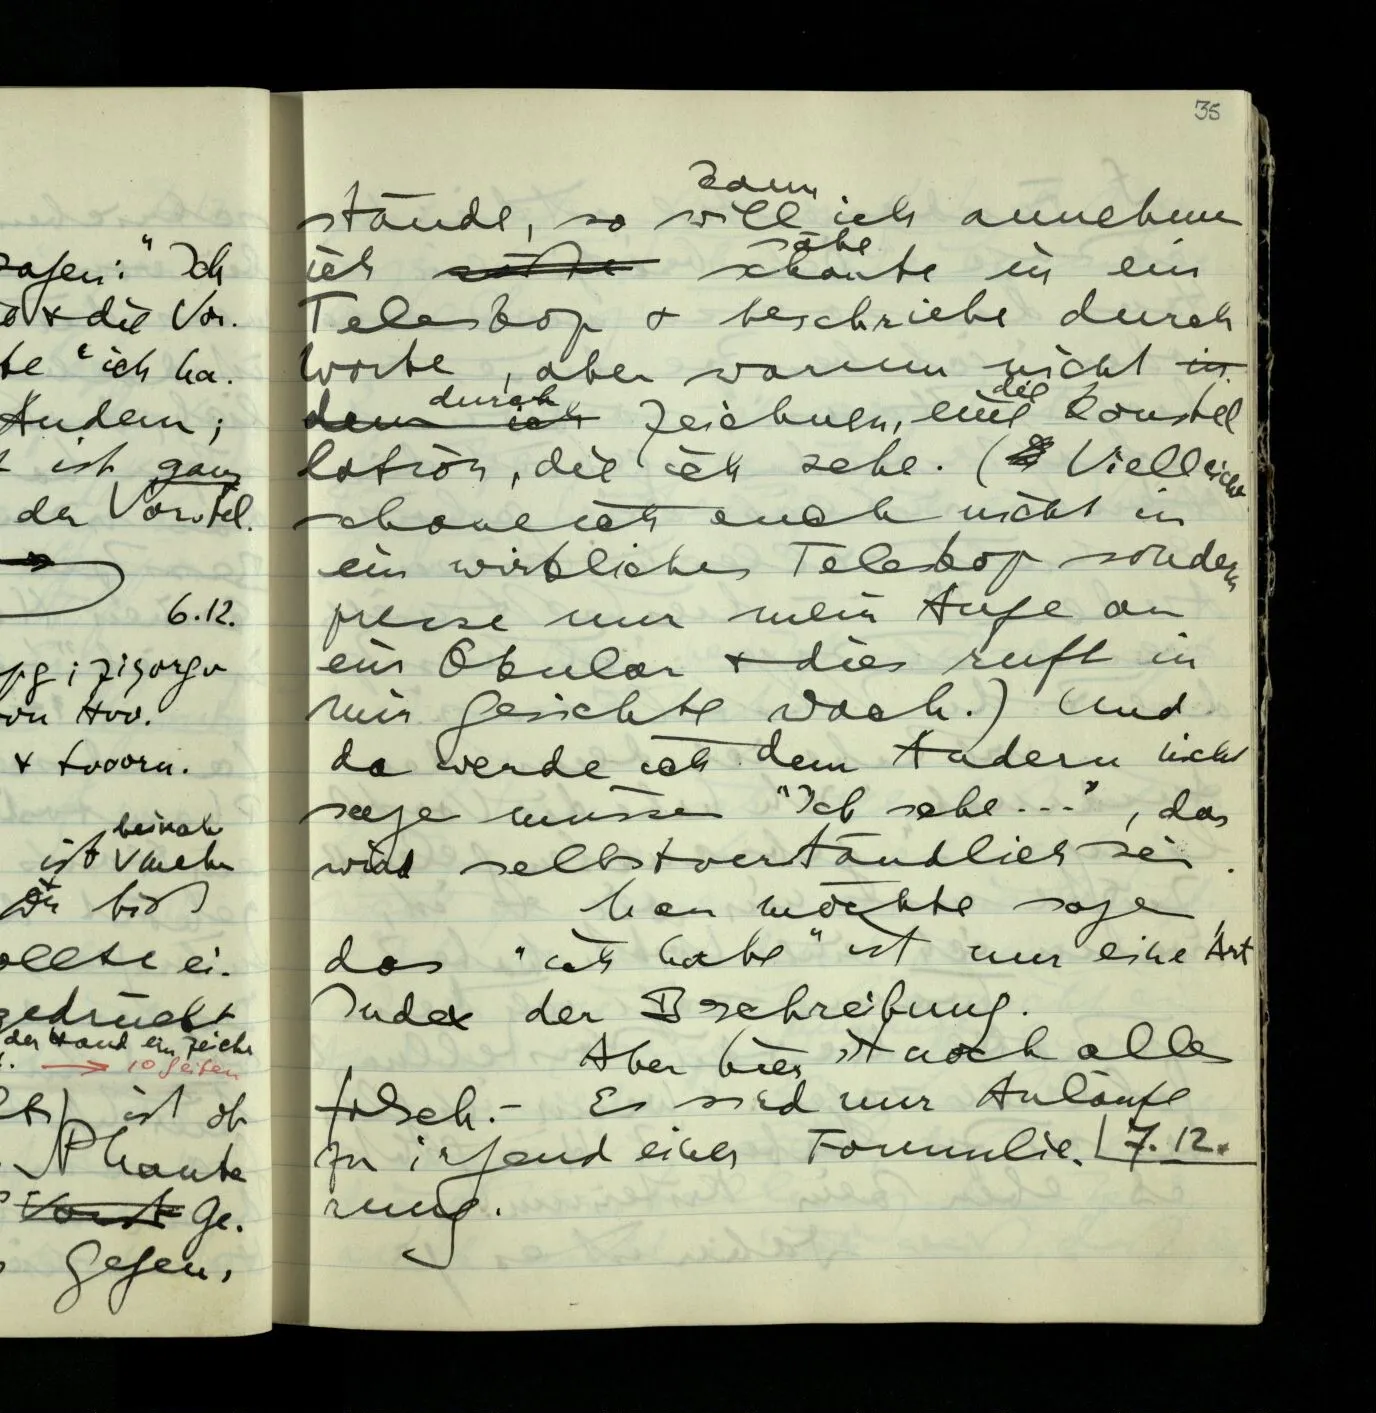 sagen: "Ich
& die Vor-
"ich ha-
Andern;
ist ganz
der Vorstel-
6.12.
& tvoorn.
beinah
ist mehr
bist
sollte ei-
gedrückt
der Hand ein Zeichen
→ 10 Seiten
ist ob
Phanta
Vorst Ge-
Gegen-
35
kann
stände, so will ich annehmen
sähe
ich sähe schaute in ein
Teleskop & beschriebe durch
Worte, aber warum nicht in
durch die
dem ich Zeichnen, eine Konstel
lation, die ich sehe. (Vielleicht
schaue ich auch nicht in
ein wirkliches Teleskop sondern
presse nur mein Auge an
ein Okular & dies ruft in
mir Gesichte wach.) Und
da werde ich dem Andern nicht
sagen müssen "Ich sehe ...", das
wird selbstverständlich sein.
Man möchte sagen
das "ich habe" ist nur eine Art
Index der Beschreibung.
Aber hier ist noch alles
falsch. – Es sind nur Anläufe
zu irgend einer Formulie- 7.12.
rung.